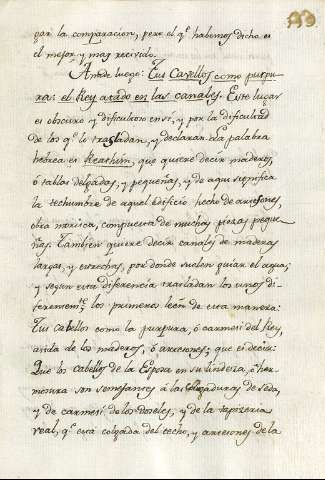 gar la comparacion, pero el q.e habemos dicho es
el mejor, y mas recivido.
Añade luego: Tus Cavellos como purpu-
ra: el Rey atado en las canales. Este lugar
es obscuro y dificultoso en sí, y por la dificultad
de los q.e le trasladan, y declaran. La palabra
hebrea es Reathim, que quiere decir maderos,
ó tablas delgadas, y pequeñas, y de aqui significa
la techumbre de aquel edificio hecho de artesones,
obra morisca, compuesta de muchas piezas peque-
ñas. Tambien quiere decir canales de maderas
largas, y estrechas, por donde suelen guiar el agua;
y segun esta diferencia trasladan los unos di-
ferentem.te los primeros leen de esta manera:
Tus cabellos como la purpura, ó carmesí del Rey,
atada de los maderos, ó artesones; que es decir:
Que los cabellos de la Esposa en su lindeza, ó her-
mosura son semejantes á las colgaduras de seda,
y de carmesí de los doseles, y de la tapizeria
real, q.e está colgada del techo, y artesones de la